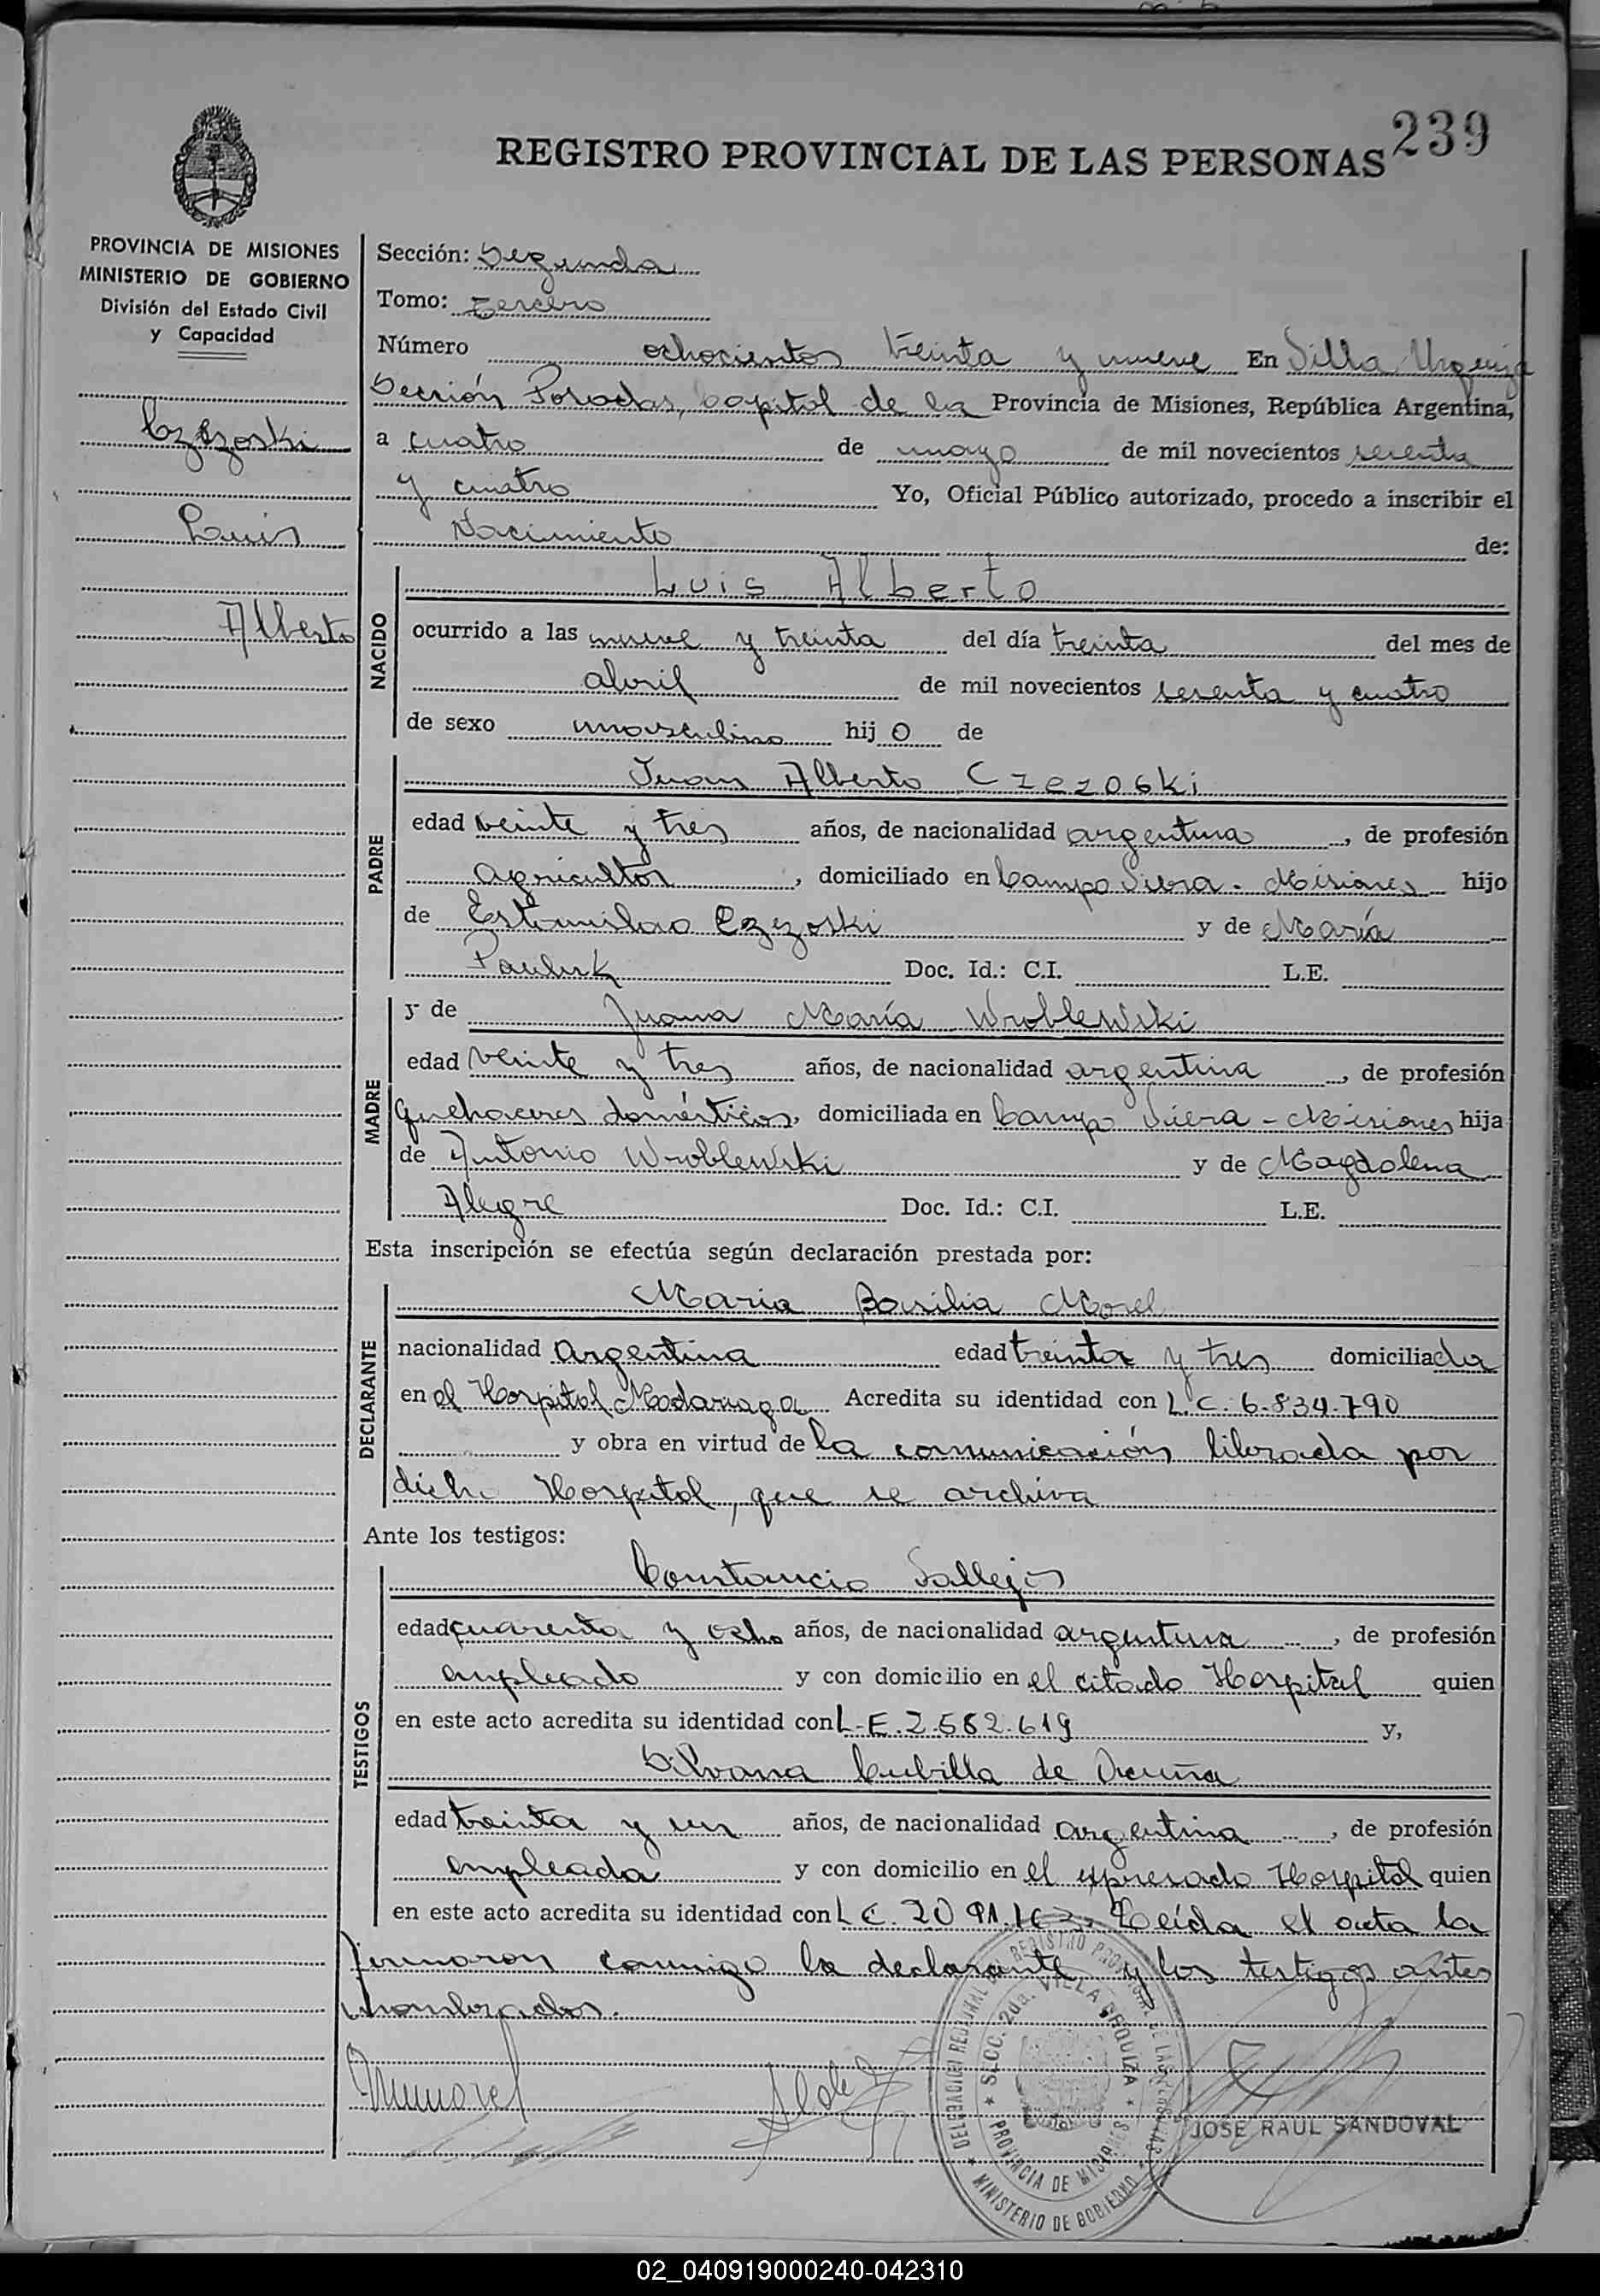 239
REGISTRO PROVINCIAL DE LAS PERSONAS
PROVINCIA DE MISIONES
MINISTERIO DE GOBIERNO
División del Estado Civil
y Capacidad
Czezoski
Luis
Alberto
Sección: Segunda
Tomo: tercero
Número ochocientos treinta y nueve En Villa Urquiza
Sección Posadas, Capital de la Provincia de Misiones, República Argentina,
a cuatro de mayo de mil novecientos sesenta
y cuatro Yo, Oficial Público autorizado, procedo a inscribir el
Nacimiento de:
NACIDO
Luis Alberto
ocurrido a las nueve y treinta del día treinta del mes de
abril de mil novecientos sesenta y cuatro
de sexo masculino hijo de
PADRE
Juan Alberto Czezoski
edad veinte y tres años, de nacionalidad argentina, de profesión
agricultor, domiciliado en Campo Viera - Misiones hijo
de Estanislao Czezoski y de María
Doc. Id.: C.I. L.E.
MADRE
y de Juana María Wroblewski
edad veinte y tres años, de nacionalidad argentina, de profesión
quehaceres domésticos, domiciliada en Campo Viera - Misiones hija
de Antonio Wroblewski y de Magdalena
Alegre Doc. Id.: C.I. L.E.
Esta inscripción se efectúa según declaración prestada por:
DECLARANTE
Maria Basilia Morel
nacionalidad Argentina edad treinta y tres domiciliada
en el Hospital Madariaga Acredita su identidad con L.C. 6.834.790
y obra en virtud de la comunicación librada por
dicho Hospital, que se archiva
Ante los testigos:
TESTIGOS
Constancio Vallejos
edad cuarenta y ocho años, de nacionalidad argentina, de profesión
empleado y con domicilio en el citado Hospital quien
en este acto acredita su identidad con L.E. 2.582.619 y,
Silvana Cubilla de Acuña
edad treinta y un años, de nacionalidad argentina, de profesión
empleada y con domicilio en el expresado Hospital quien
en este acto acredita su identidad con L C. Leída el acta la
firmaron conmigo la declarante y los testigos antes
nombrados.
REGISTRO PROVINCIAL DE LAS PERSONAS
SECC. 2da. VILLA URQUIZA
PROVINCIA DE MISIONES
MINISTERIO DE GOBIERNO
JOSE RAUL SANDOVAL
02_040919000240-042310